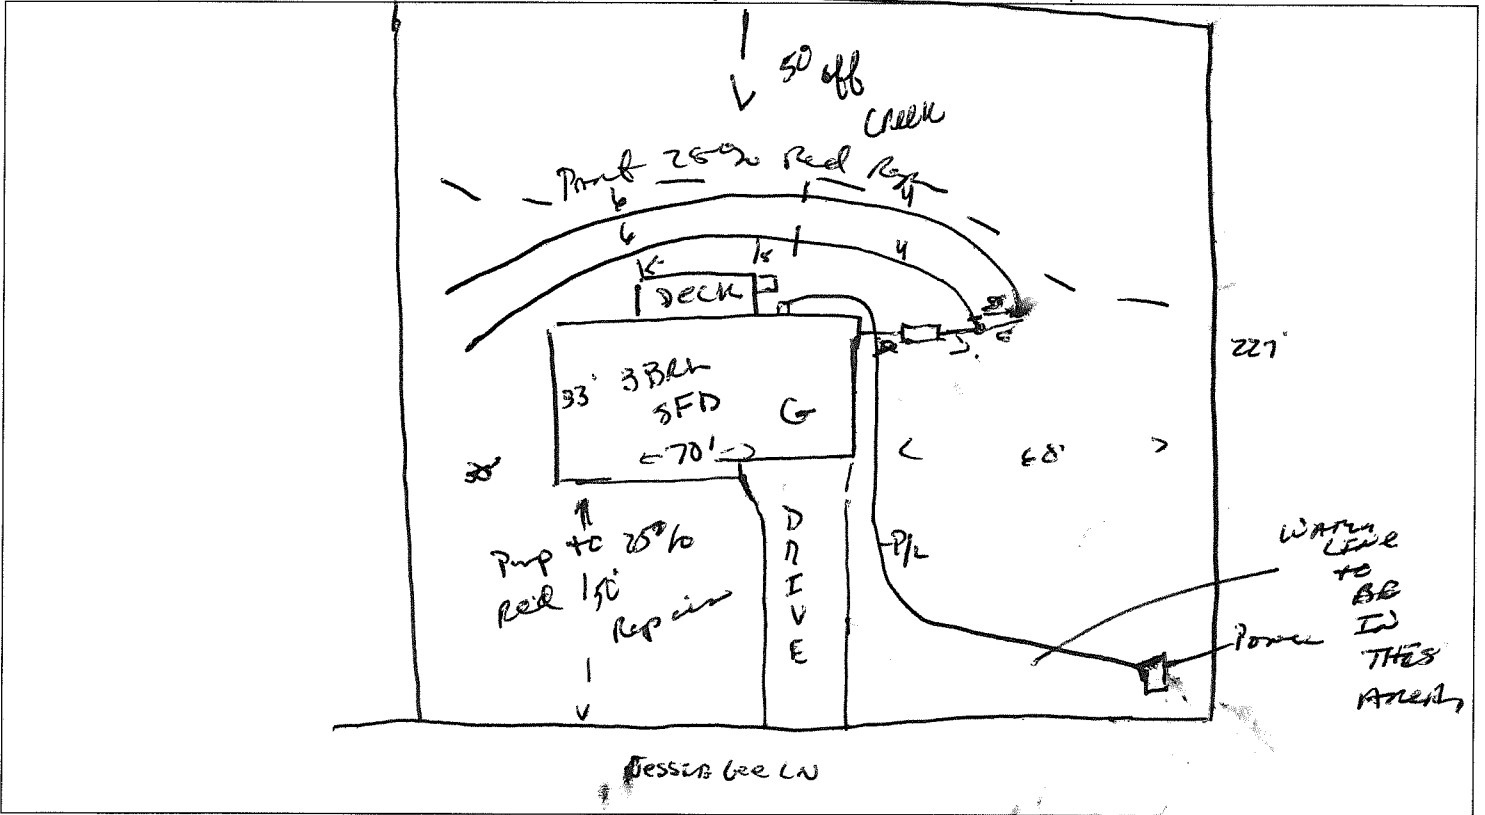 50 off
Creek
25%  Red Rep
6
4
6
4
15
DECK
227'
33' 3 BRM
SFD
G
70'
Pump to 25%
Red 150'
Repair
DRIVE
P/L
WATER
LINE
TO
BE
IN
THIS
AREA
Power
Jessie Lee LN